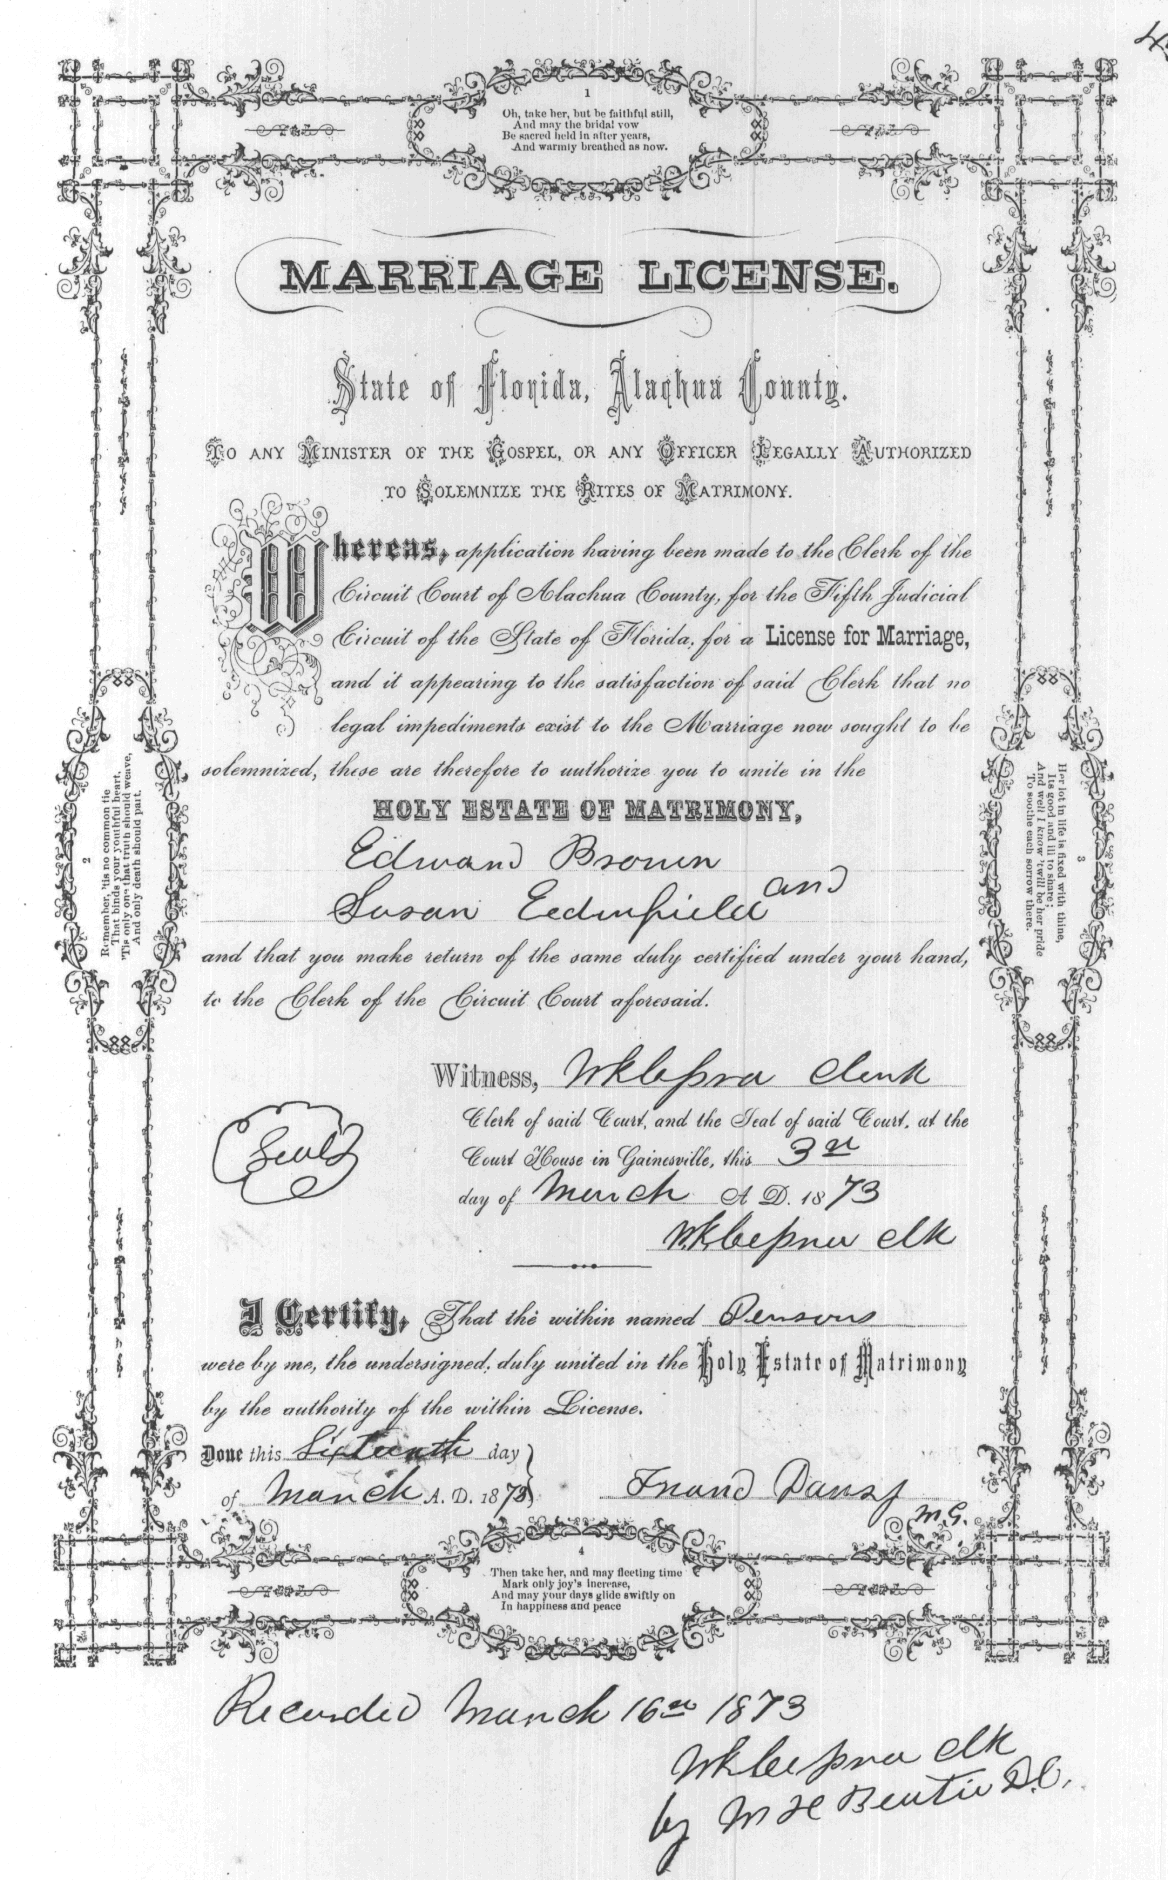 1
Oh, take her, but be faithful still,
And may the bridal vow
Be sacred held in after years,
And warmly breathed as now.
MARRIAGE LICENSE.
State of Florida, Alachua County.
TO ANY MINISTER OF THE GOSPEL, OR ANY OFFICER LEGALLY AUTHORIZED
TO SOLEMNIZE THE RITES OF MATRIMONY.
Whereas, application having been made to the Clerk of the
Circuit Court of Alachua County, for the Fifth Judicial
Circuit of the State of Florida, for a License for Marriage,
and it appearing to the satisfaction of said Clerk that no
legal impediments exist to the Marriage now sought to be
solemnized, these are therefore to authorize you to unite in the
HOLY ESTATE OF MATRIMONY,
Edward Brown
and
Susan
and that you make return of the same duly certified under your hand,
to the Clerk of the Circuit Court aforesaid.
2
Remember, 'tis no common tie
That binds your youthful heart,
'Tis only one that truth should weave,
And only death should part.
3
Her lot in life is fixed with thine,
Its good and ill to share;
And well I know 'twill be her pride
To soothe each sorrow there.
Witness, Clerk
Clerk of said Court, and the Seal of said Court, at the
Court House in Gainesville, this 3rd
day of March A D. 1873
clk
Seal
I Certify, That the within named Persons
were by me, the undersigned, duly united in the Holy Estate of Matrimony
by the authority of the within License.
Done this Sixteenth day
of March A. D. 1873
M.G.
4
Then take her, and may fleeting time
Mark only joy's increase,
And may your days glide swiftly on
In happiness and peace
Recorded March 16 1873
clk
by D.C.